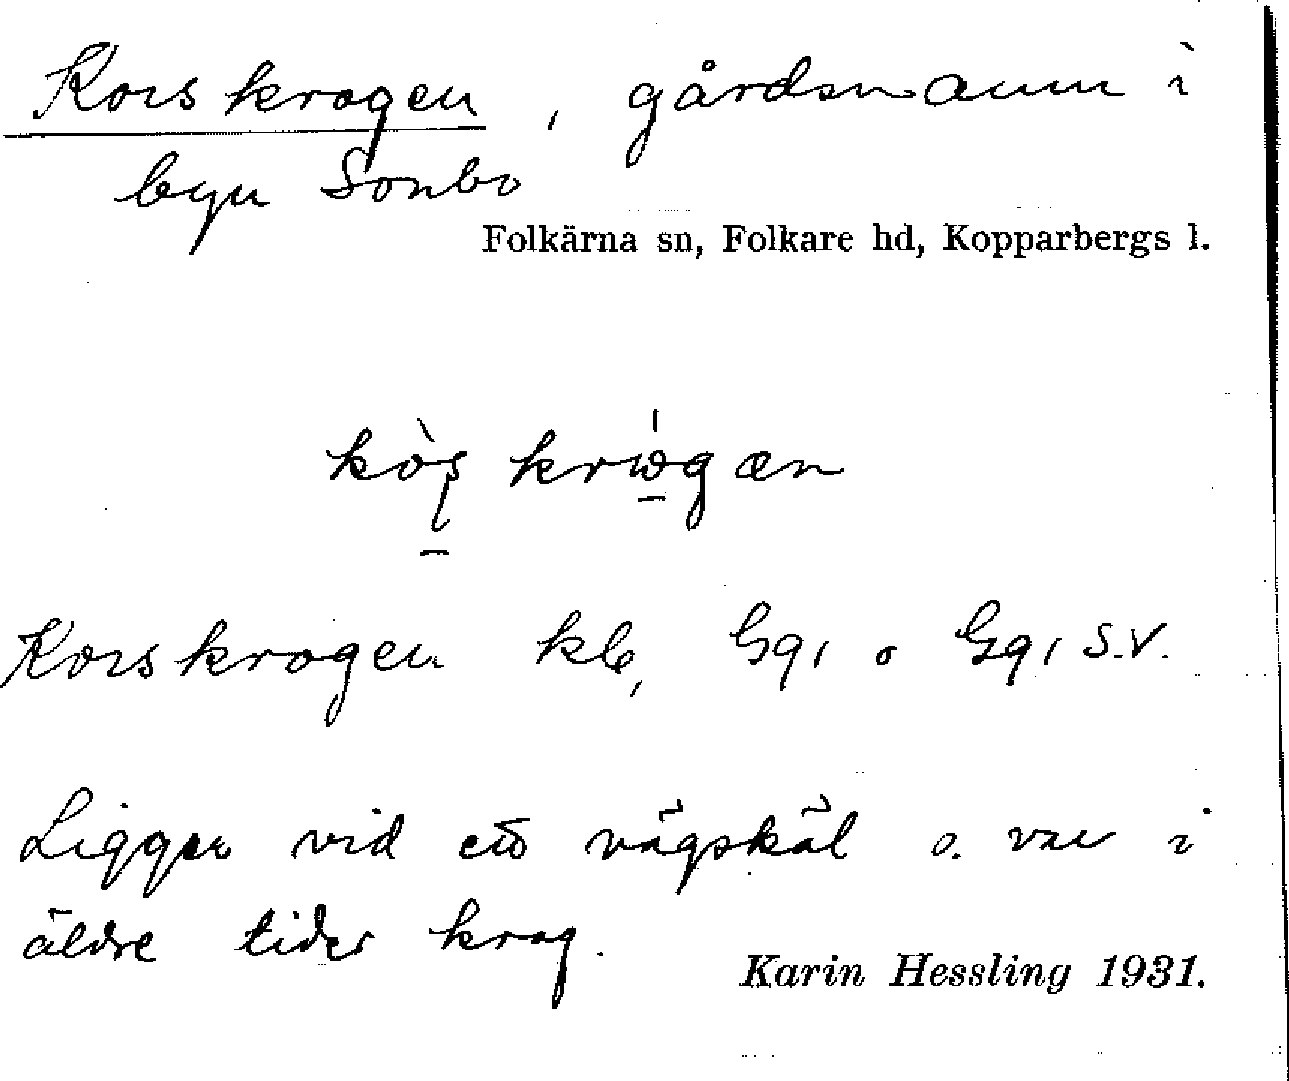 Korskrogen, gårdsnamn i
byn Sonbo
Folkärna sn, Folkare hd, Kopparbergs l.
Korskrogen kb, Gg, o Gg, S.V.
Ligger vid ett vägskäl o. var i
äldre tider krog.
Karin Hessling 1931.